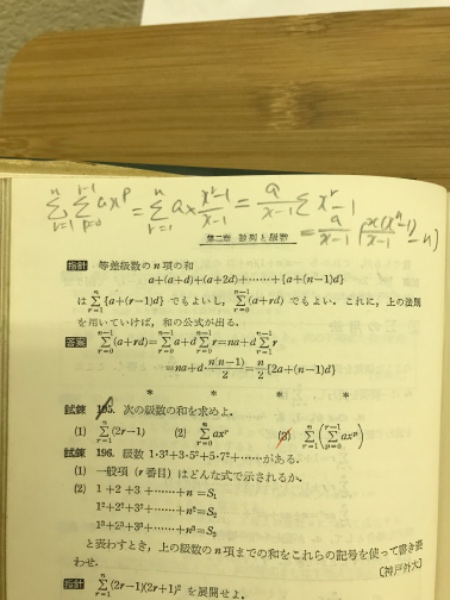 n∑r=1 r-1∑p=0 ax^p = n∑r=1 a × (x^r-1)/(x-1) = a/(x-1) ∑ x^r-1
= a/(x-1) (x(x^n-1)/(x-1) - n)
第二章 数列と級数
指針 等差級数の n 項の和
a+(a+d)+(a+2d)+……+{a+(n-1)d}
は n∑r=1{a+(r-1)d} でもよいし，n-1∑r=0(a+rd) でもよい．これに，上の法則
を用いていけば，和の公式が出る．
答案 n-1∑r=0(a+rd)=n-1∑r=0 a+d n-1∑r=0 r=na+d n-1∑r=1 r
=na+d·n(n-1)/2=n/2{2a+(n-1)d}
* * * *
試錬 195. 次の級数の和を求めよ．
(1) n∑r=1(2r-1) (2) n∑r=0 ax^r (3) n∑r=1(r-1∑p=0 ax^p)
試錬 196. 級数 1·3²+3·5²+5·7²+……がある．
(1) 一般項（r 番目）はどんな式で示されるか．
(2) 1+2+3+……+n=S₁
1²+2²+3²+……+n²=S₂
1³+2³+3³+……+n³=S₃
と表わすとき，上の級数の n 項までの和をこれらの記号を使って書き表
わせ． 〔神戸外大〕
指針 n∑r=1(2r-1)(2r+1)² を展開せよ．